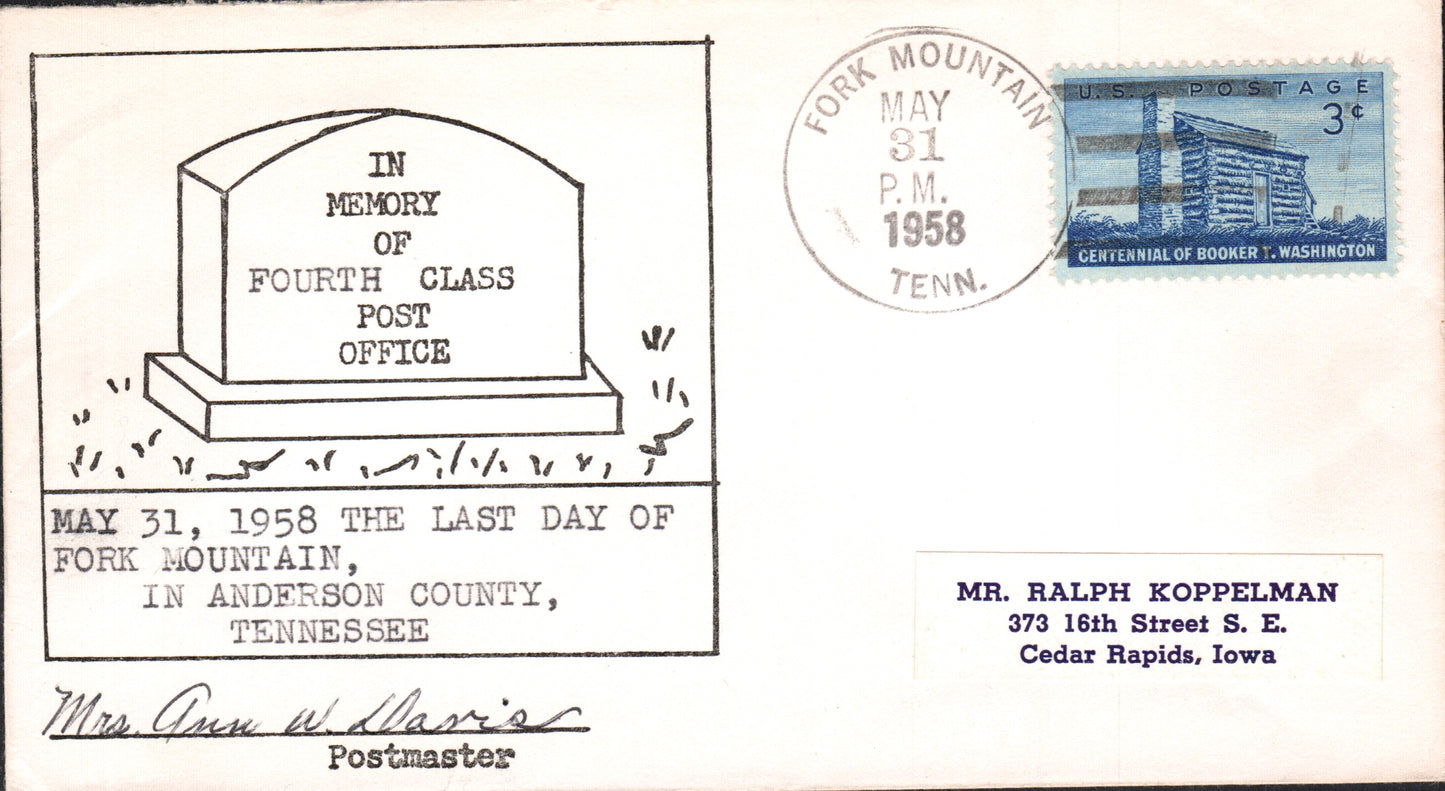 IN
MEMORY
OF
FOURTH CLASS
POST
OFFICE
MAY 31, 1958 THE LAST DAY OF
FORK MOUNTAIN,
IN ANDERSON COUNTY,
TENNESSEE
Mrs. Ann W. Davis
Postmaster
FORK MOUNTAIN
MAY
31
P.M.
1958
TENN.
U.S. POSTAGE
3¢
CENTENNIAL OF BOOKER T. WASHINGTON
MR. RALPH KOPPELMAN
373 16th Street S. E.
Cedar Rapids, Iowa